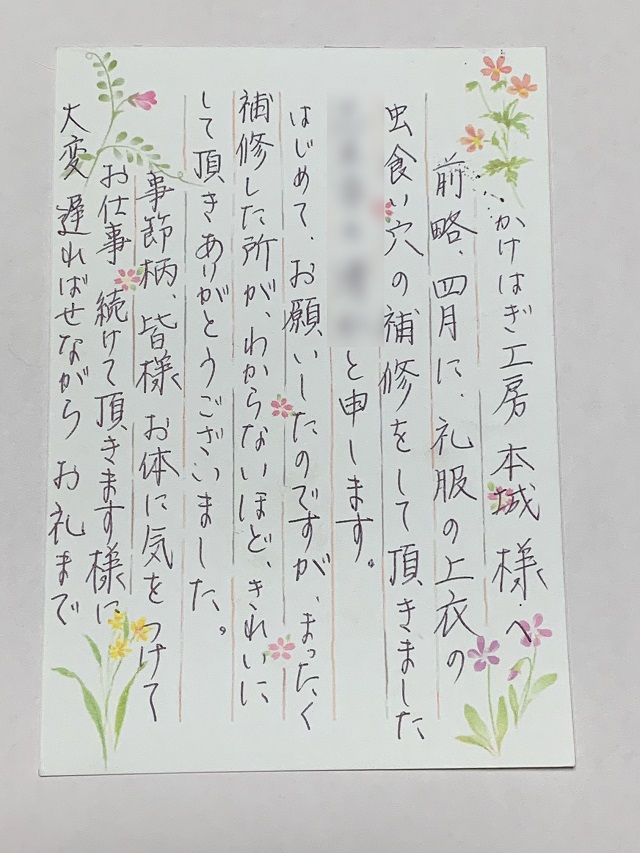 かけはぎ工房 本城 様へ
前略、四月に、礼服の上衣の
虫食い穴の補修をして頂きました
と申します。
はじめて、お願いしたのですが、まったく
補修した所が、わからないほど、きれいに
して頂きありがとうございました。
事節柄、皆様 お体に気をつけて
お仕事 続けて頂きます様に
大変 遅ればせながら お礼まで